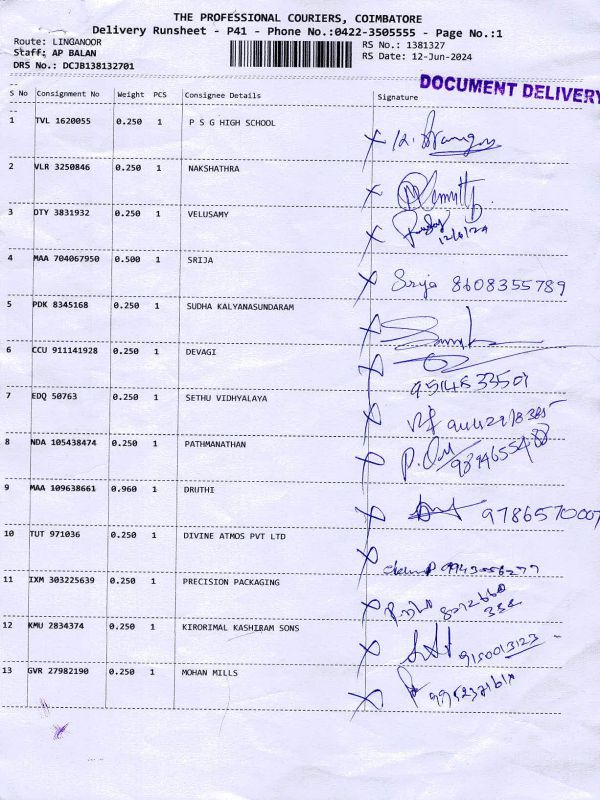 THE PROFESSIONAL COURIERS, COIMBATORE
Delivery Runsheet - P41 - Phone No.:0422-3505555 - Page No.:1
Route: LINGANOOR
RS No.: 1381327
Staff: AP BALAN
RS Date: 12-Jun-2024
DRS No.: DCJB138132701
DOCUMENT DELIVERY
S No Consignment No Weight PCS Consignee Details Signature
1 TVL 1620055 0.250 1 P S G HIGH SCHOOL X
2 VLR 3250846 0.250 1 NAKSHATHRA X
3 DTY 3831932 0.250 1 VELUSAMY X
12/6/24
4 MAA 704067950 0.500 1 SRIJA X Srija 8608355789
5 PDK 8345168 0.250 1 SUDHA KALYANASUNDARAM X
6 CCU 911141928 0.250 1 DEVAGI X
7 EDQ 50763 0.250 1 SETHU VIDHYALAYA X
8 NDA 105438474 0.250 1 PATHMANATHAN X
9 MAA 109638661 0.960 1 DRUTHI X 9786570007
10 TUT 971036 0.250 1 DIVINE ATMOS PVT LTD X
11 IXM 303225639 0.250 1 PRECISION PACKAGING X
12 KMU 2834374 0.250 1 KIRORIMAL KASHIRAM SONS X 9150013123
13 GVR 27982190 0.250 1 MOHAN MILLS X